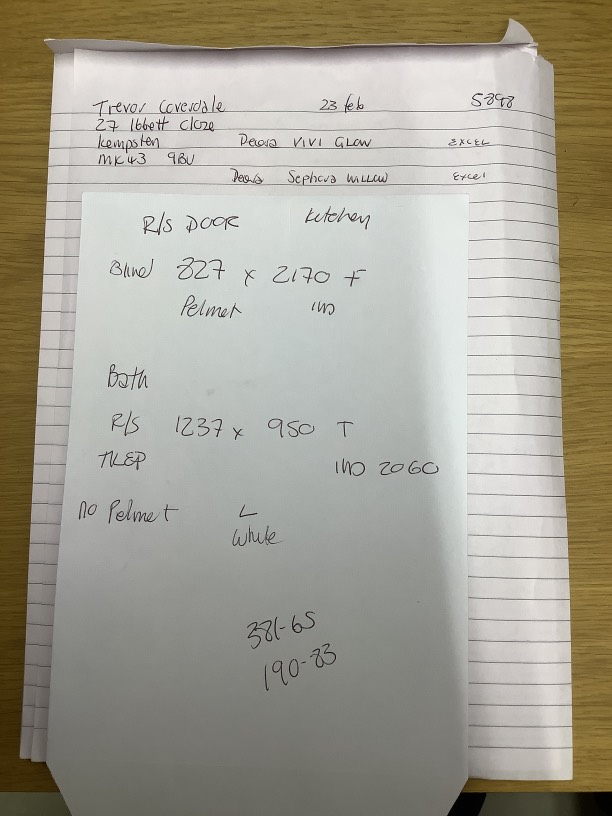 Trevor Coverdale 23 feb 5898
27 Ibbett Close
Kempston Decora VIVI GLOW EXCEL
MK43 9BU
Decora Sephora WILLOW Excel
R/S DOOR Kitchen
Blind 827 x 2170 F
Pelmet IND
Bath
R/S 1237 x 950 T
IND 2060
no Pelmet L
White
381-65
190-83